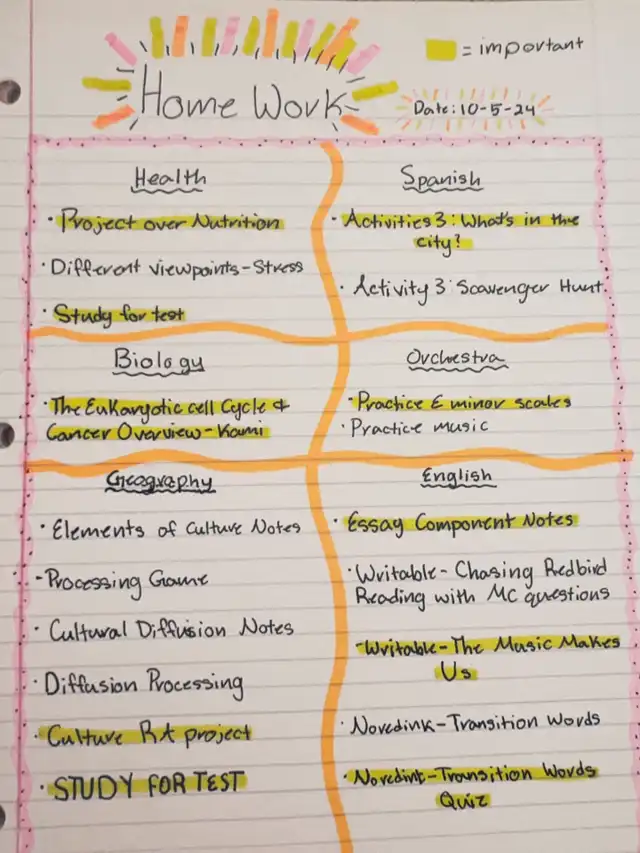 Home Work
= important
Date: 10-5-24
Health
• Project over Nutrition
• Different viewpoints-Stress
• Study for test
Spanish
• Activities 3: What's in the
city?
• Activity 3: Scavenger Hunt
Biology
• The Eukaryotic cell Cycle &
Cancer Overview-Kami
Orchestra
• Practice E minor scales
• Practice music
Geography
• Elements of Culture Notes
- Processing Game
• Cultural Diffusion Notes
• Diffusion Processing
• Culture RA project
• STUDY FOR TEST
English
• Essay Component Notes
• Writable- Chasing Redbird
Reading with MC questions
-Writable-The Music Makes
Us
• Noredink-Transition Words
• Noredink-Transition Words
Quiz